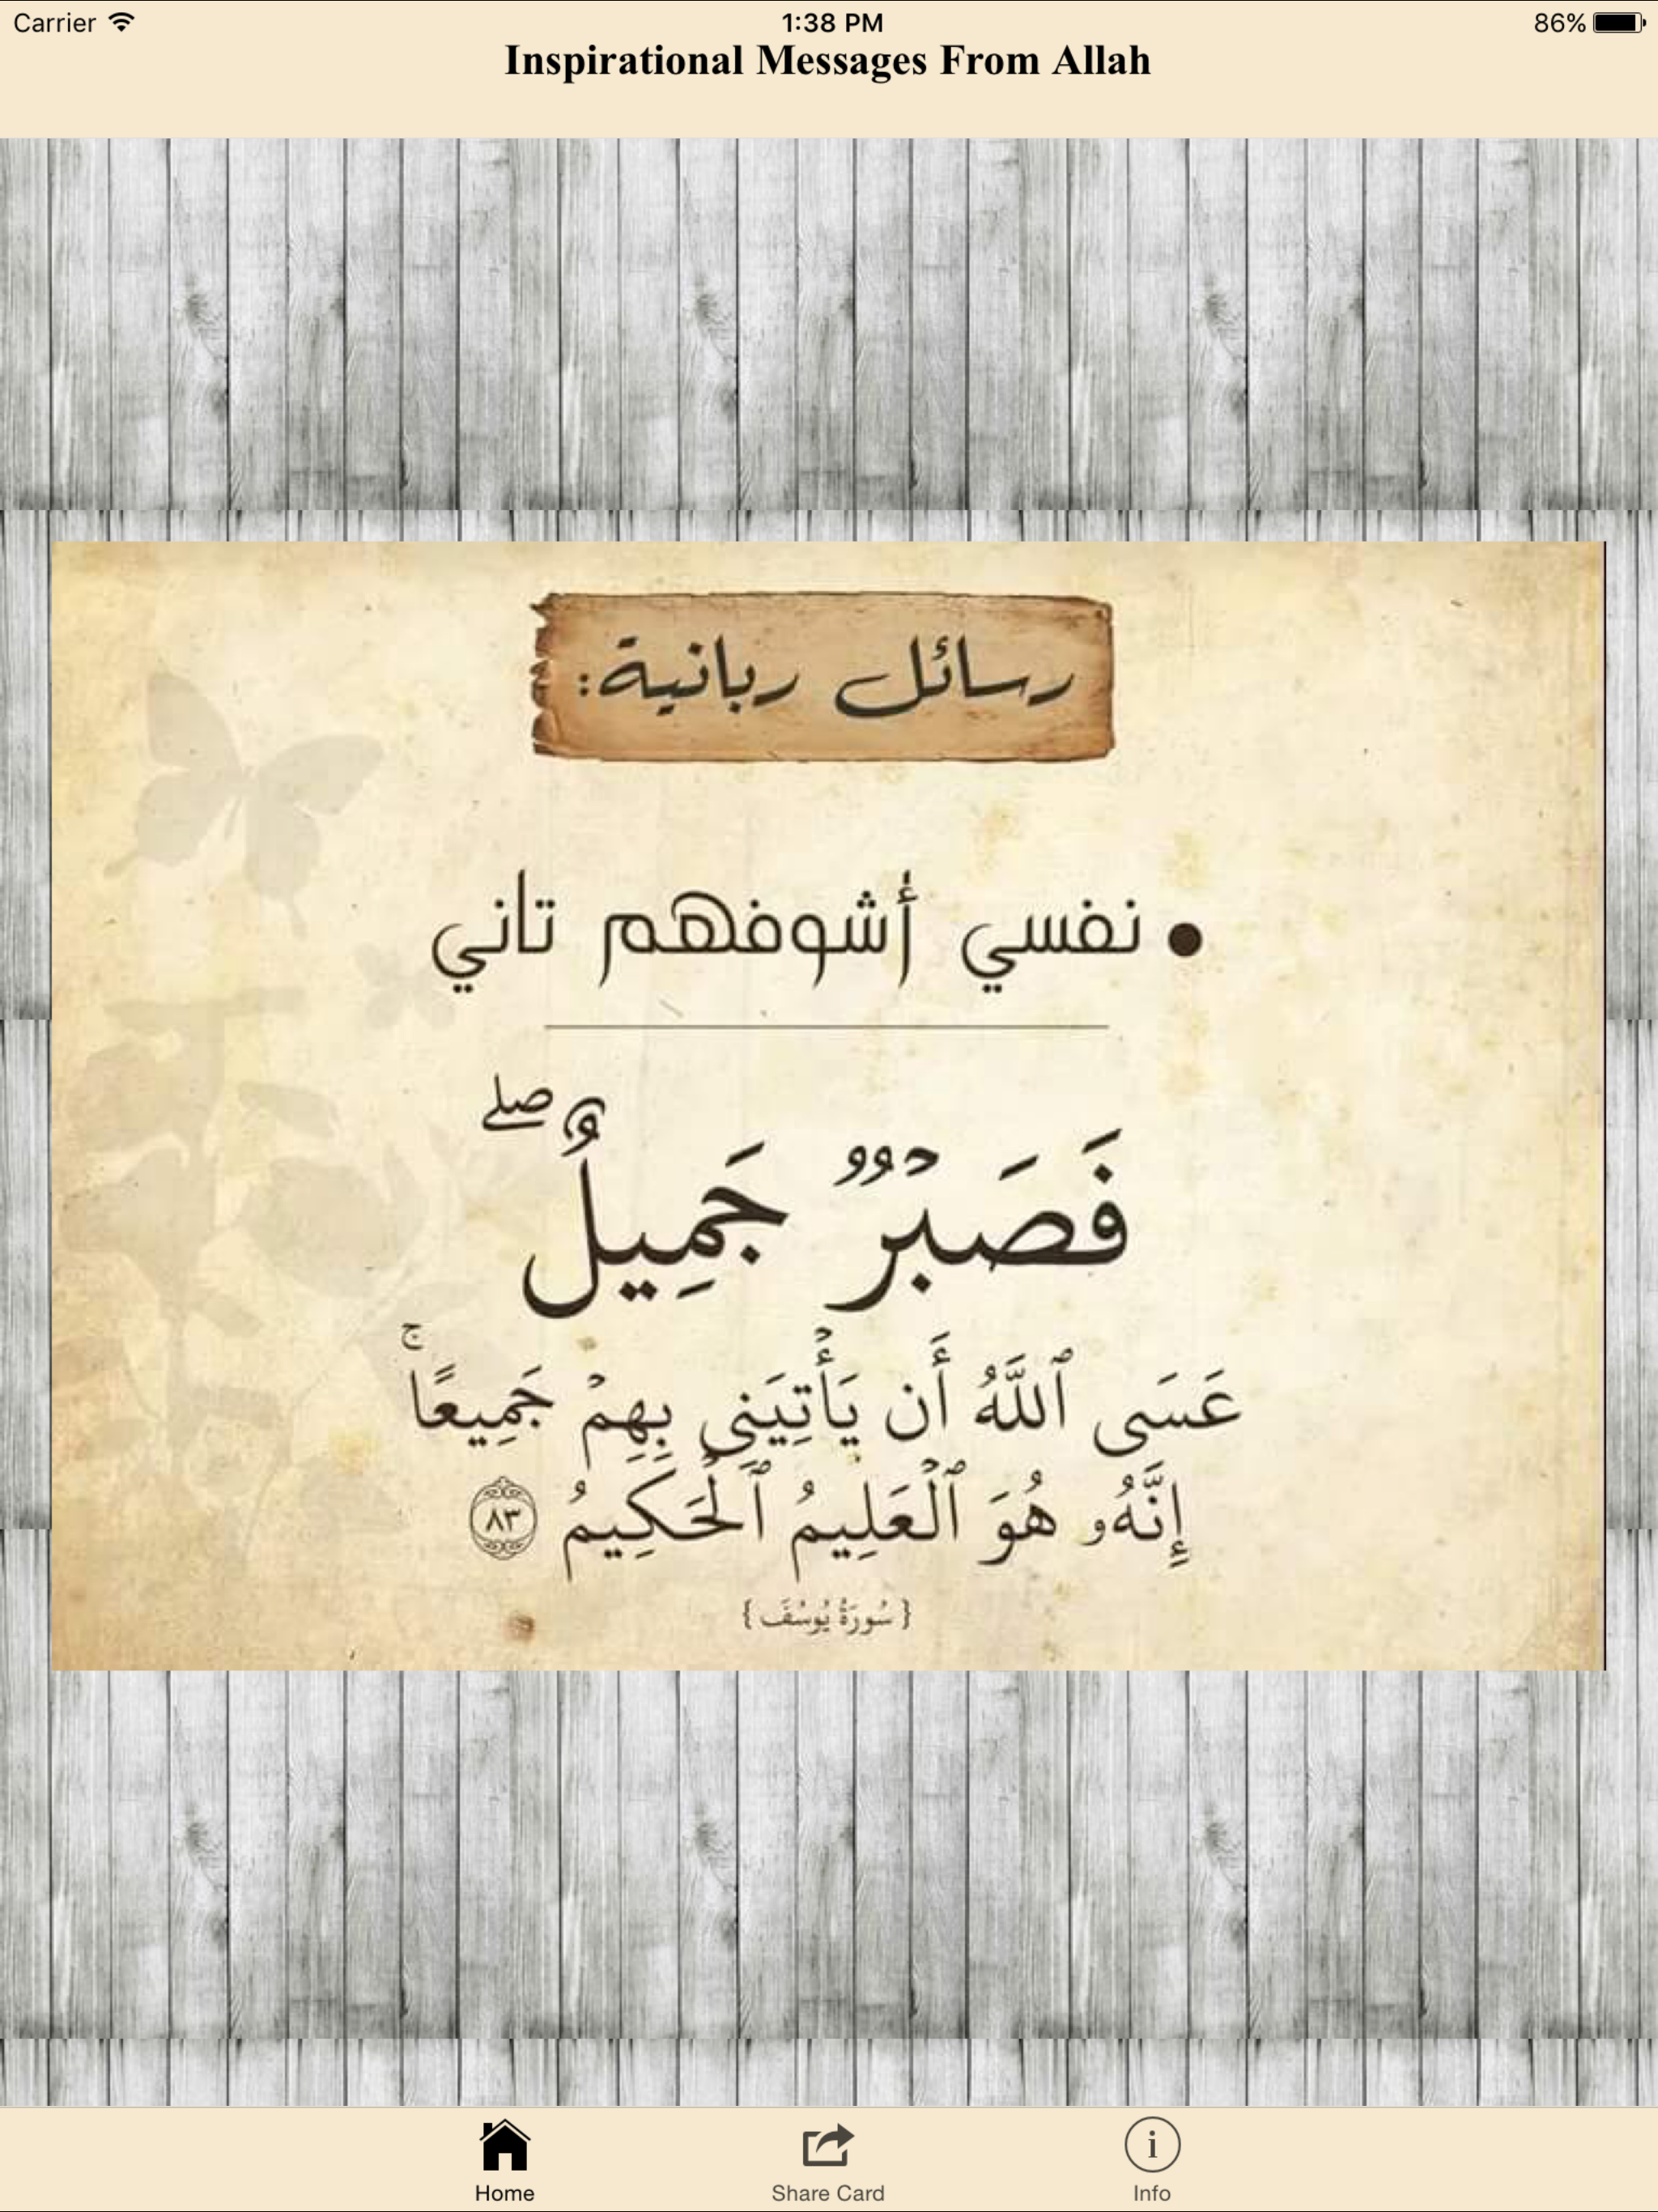 Carrier 1:38 PM 86%
Inspirational Messages From Allah
رسائل ربانية:
• نفسي أشوفهم تاني
فَصَبْرٌ جَمِيلٌ ۖ
عَسَى ٱللَّهُ أَن يَأْتِيَنِى بِهِمْ جَمِيعًا ۚ
إِنَّهُۥ هُوَ ٱلْعَلِيمُ ٱلْحَكِيمُ ٨٣
{ سُورَةُ يُوسُفَ }
Home Share Card Info